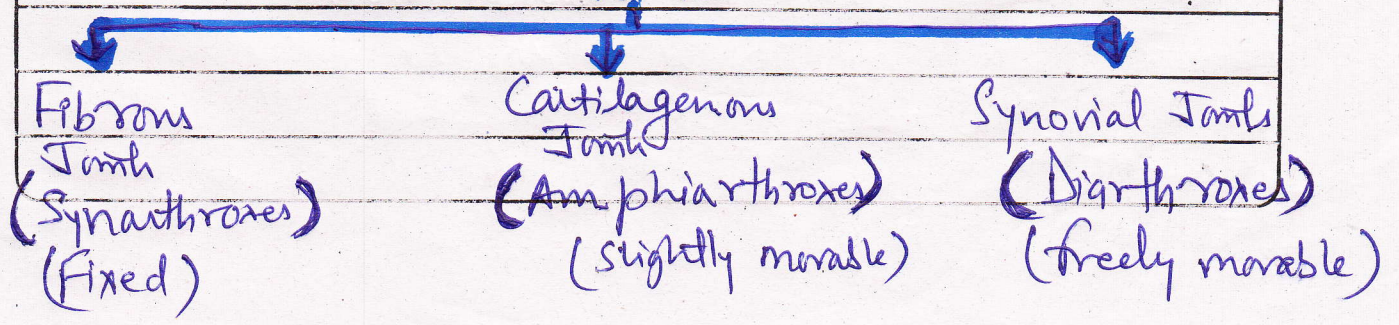 Fibrous
Joint
(Synarthroxes)
(Fixed)
Cartilagenous
Joint
(Amphiarthroxes)
(slightly movable)
Synovial Joints
(Diarthroxes)
(freely movable)